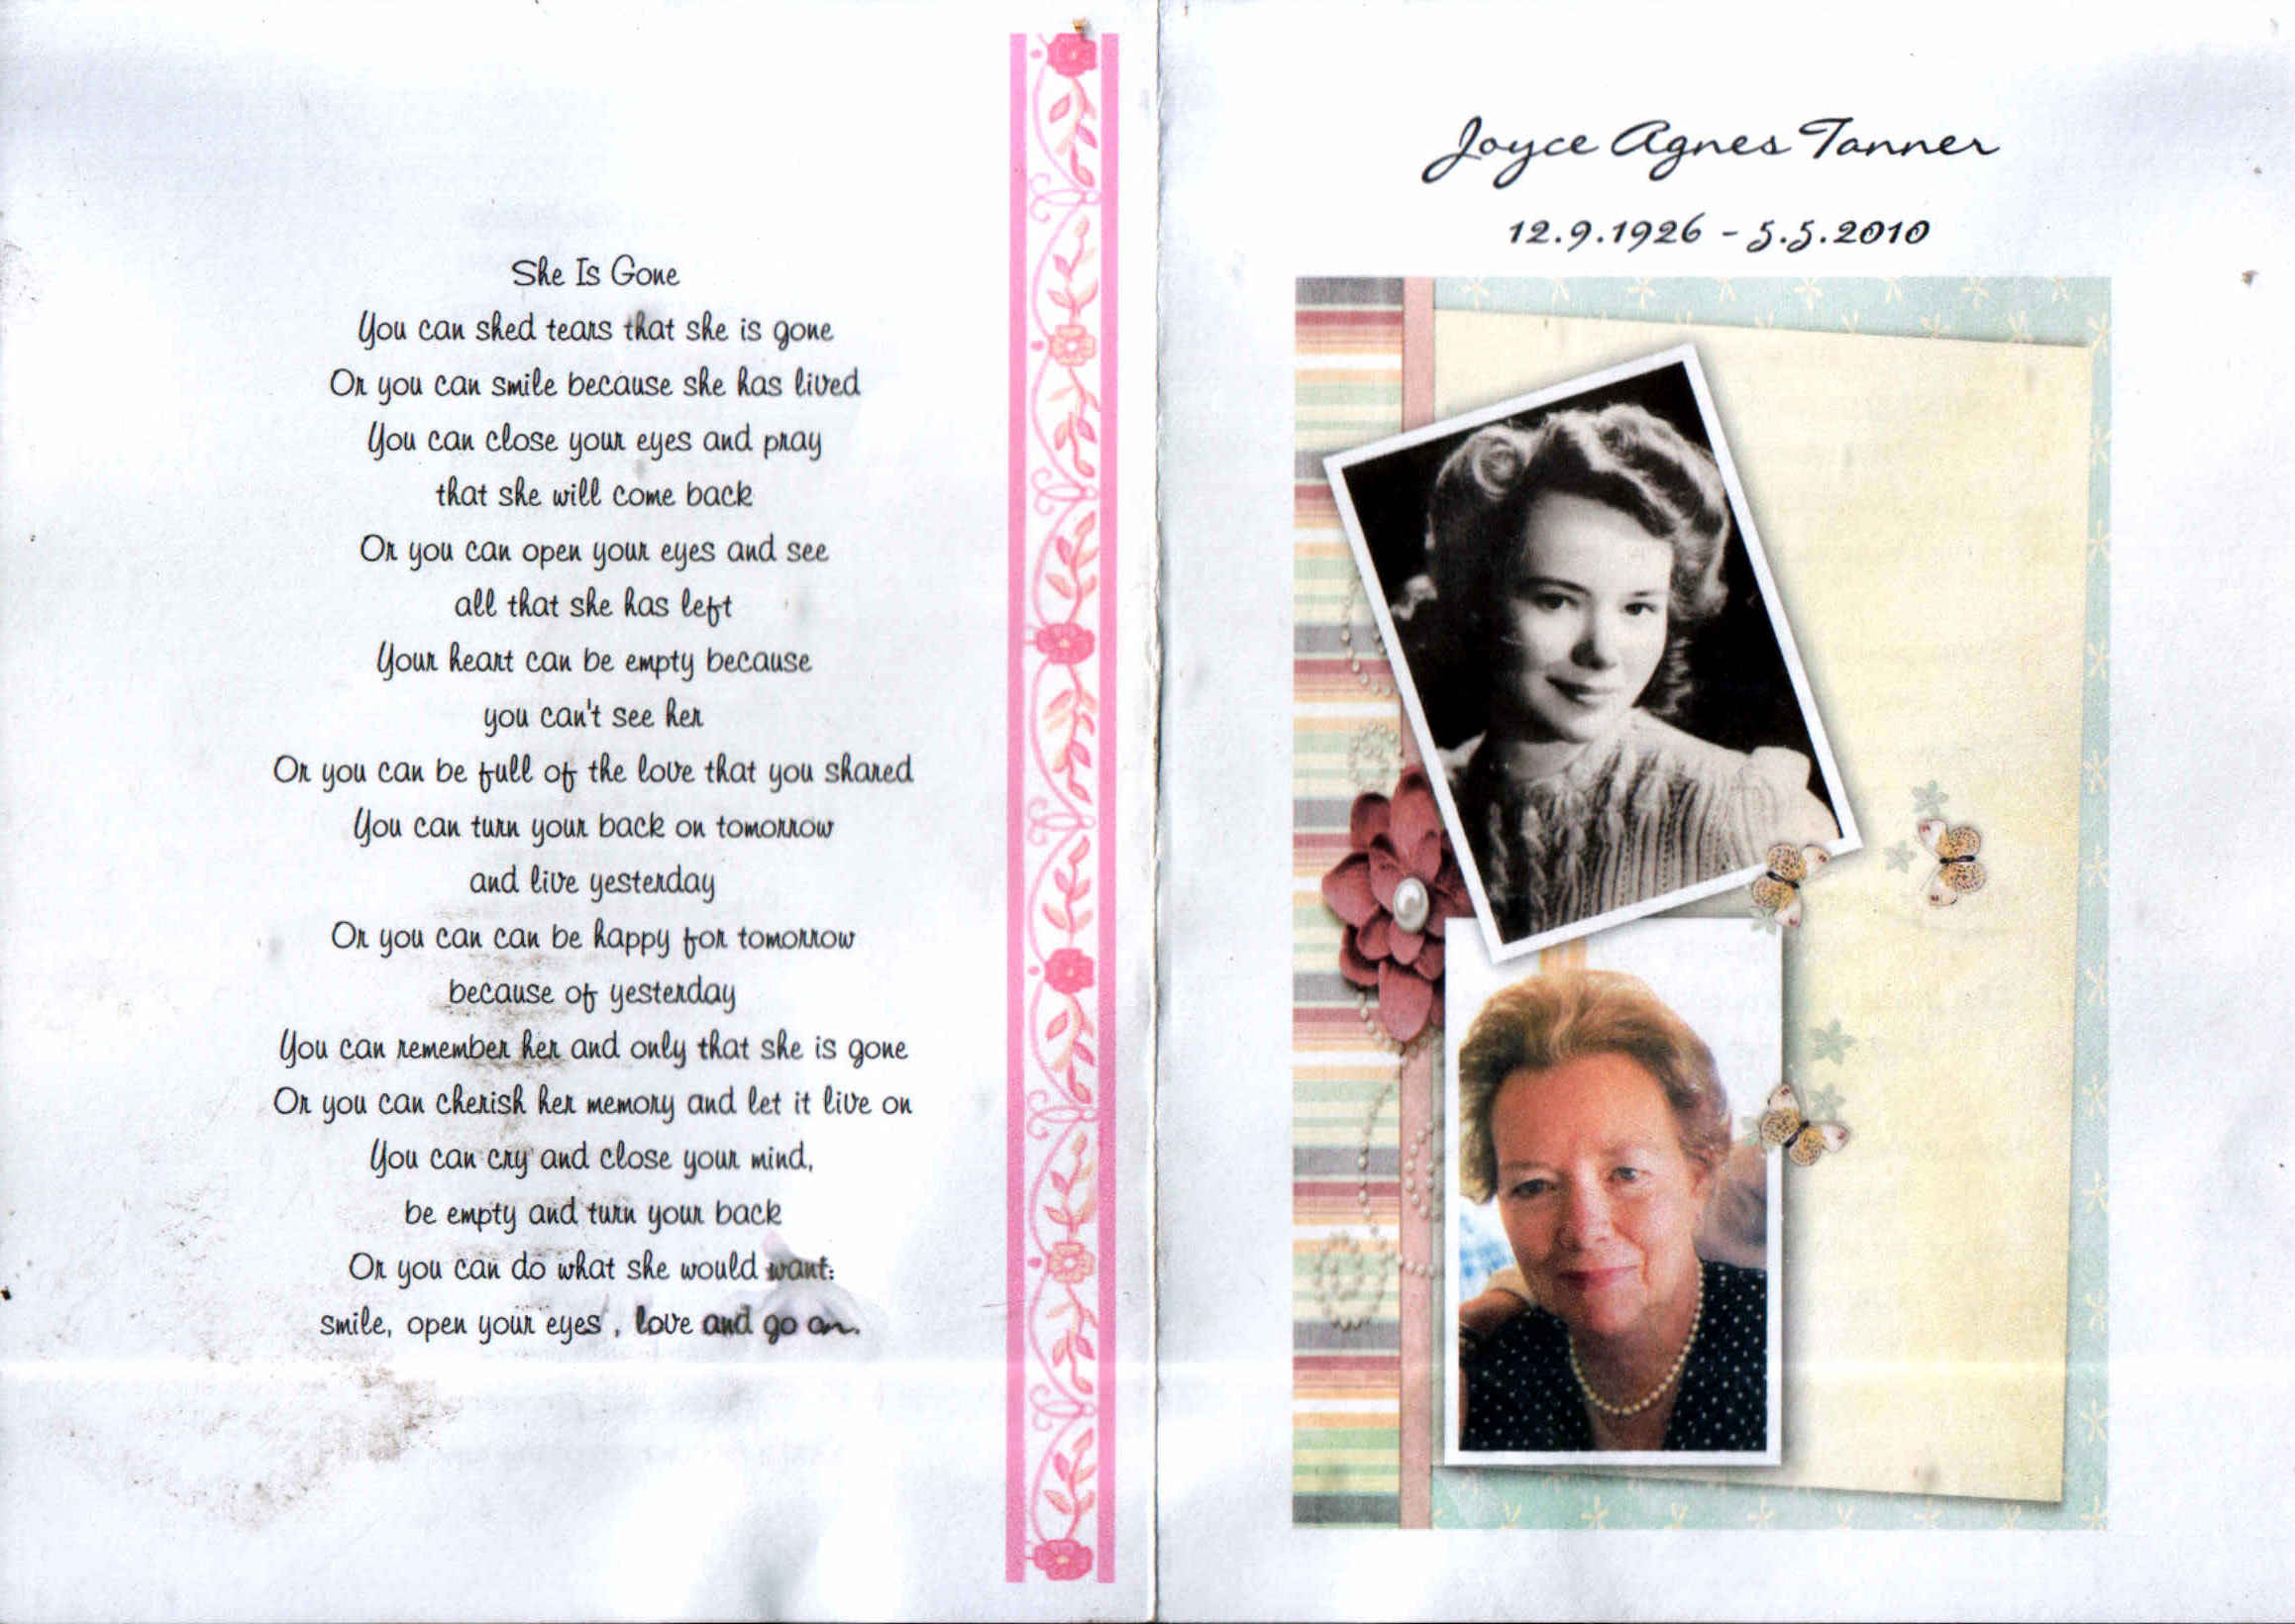 She Is Gone
You can shed tears that she is gone
Or you can smile because she has lived
You can close your eyes and pray
that she will come back
Or you can open your eyes and see
all that she has left
Your heart can be empty because
you can't see her
Or you can be full of the love that you shared
You can turn your back on tomorrow
and live yesterday
Or you can can be happy for tomorrow
because of yesterday
You can remember her and only that she is gone
Or you can cherish her memory and let it live on
You can cry and close your mind,
be empty and turn your back
Or you can do what she would want:
smile, open your eyes , love and go on.
Joyce Agnes Tanner
12.9.1926 - 5.5.2010